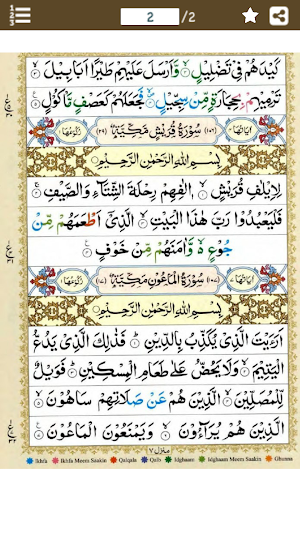 2
/2
كَيْدَهُمْ فِيْ تَضْلِيْلٍ ۙ وَّاَرْسَلَ عَلَيْهِمْ طَيْرًا اَبَابِيْلَ ۙ
تَرْمِيْهِمْ بِحِجَارَةٍ مِّنْ سِجِّيْلٍ ۙ فَجَعَلَهُمْ كَعَصْفٍ مَّاْكُوْلٍ
اٰيَاتُهَا ٤ (١٠٦) سُوْرَةُ قُرَيْشٍ مَكِّيَّةٌ (٢٩) رُكُوْعُهَا ١
بِسْمِ اللّٰهِ الرَّحْمٰنِ الرَّحِيْمِ
لِاِيْلٰفِ قُرَيْشٍ ۙ اٖلٰفِهِمْ رِحْلَةَ الشِّتَآءِ وَالصَّيْفِ ۚ
فَلْيَعْبُدُوْا رَبَّ هٰذَا الْبَيْتِ ۙ الَّذِيْٓ اَطْعَمَهُمْ مِّنْ
جُوْعٍ ۙ وَّاٰمَنَهُمْ مِّنْ خَوْفٍ
اٰيَاتُهَا ٧ (١٠٧) سُوْرَةُ الْمَاعُوْنِ مَكِّيَّةٌ (١٧) رُكُوْعُهَا ١
بِسْمِ اللّٰهِ الرَّحْمٰنِ الرَّحِيْمِ
اَرَءَيْتَ الَّذِيْ يُكَذِّبُ بِالدِّيْنِ ۭ فَذٰلِكَ الَّذِيْ يَدُعُّ
الْيَتِيْمَ ۙ وَلَا يَحُضُّ عَلٰى طَعَامِ الْمِسْكِيْنِ ۭ فَوَيْلٌ
لِّلْمُصَلِّيْنَ ۙ الَّذِيْنَ هُمْ عَنْ صَلَاتِهِمْ سَاهُوْنَ ۙ
الَّذِيْنَ هُمْ يُرَآءُوْنَ ۙ وَيَمْنَعُوْنَ الْمَاعُوْنَ
منزل ٧
Ikhfa Ikhfa Meem Saakin Qalqala Qalb Idghaam Idghaam Meem Saakin Ghunna